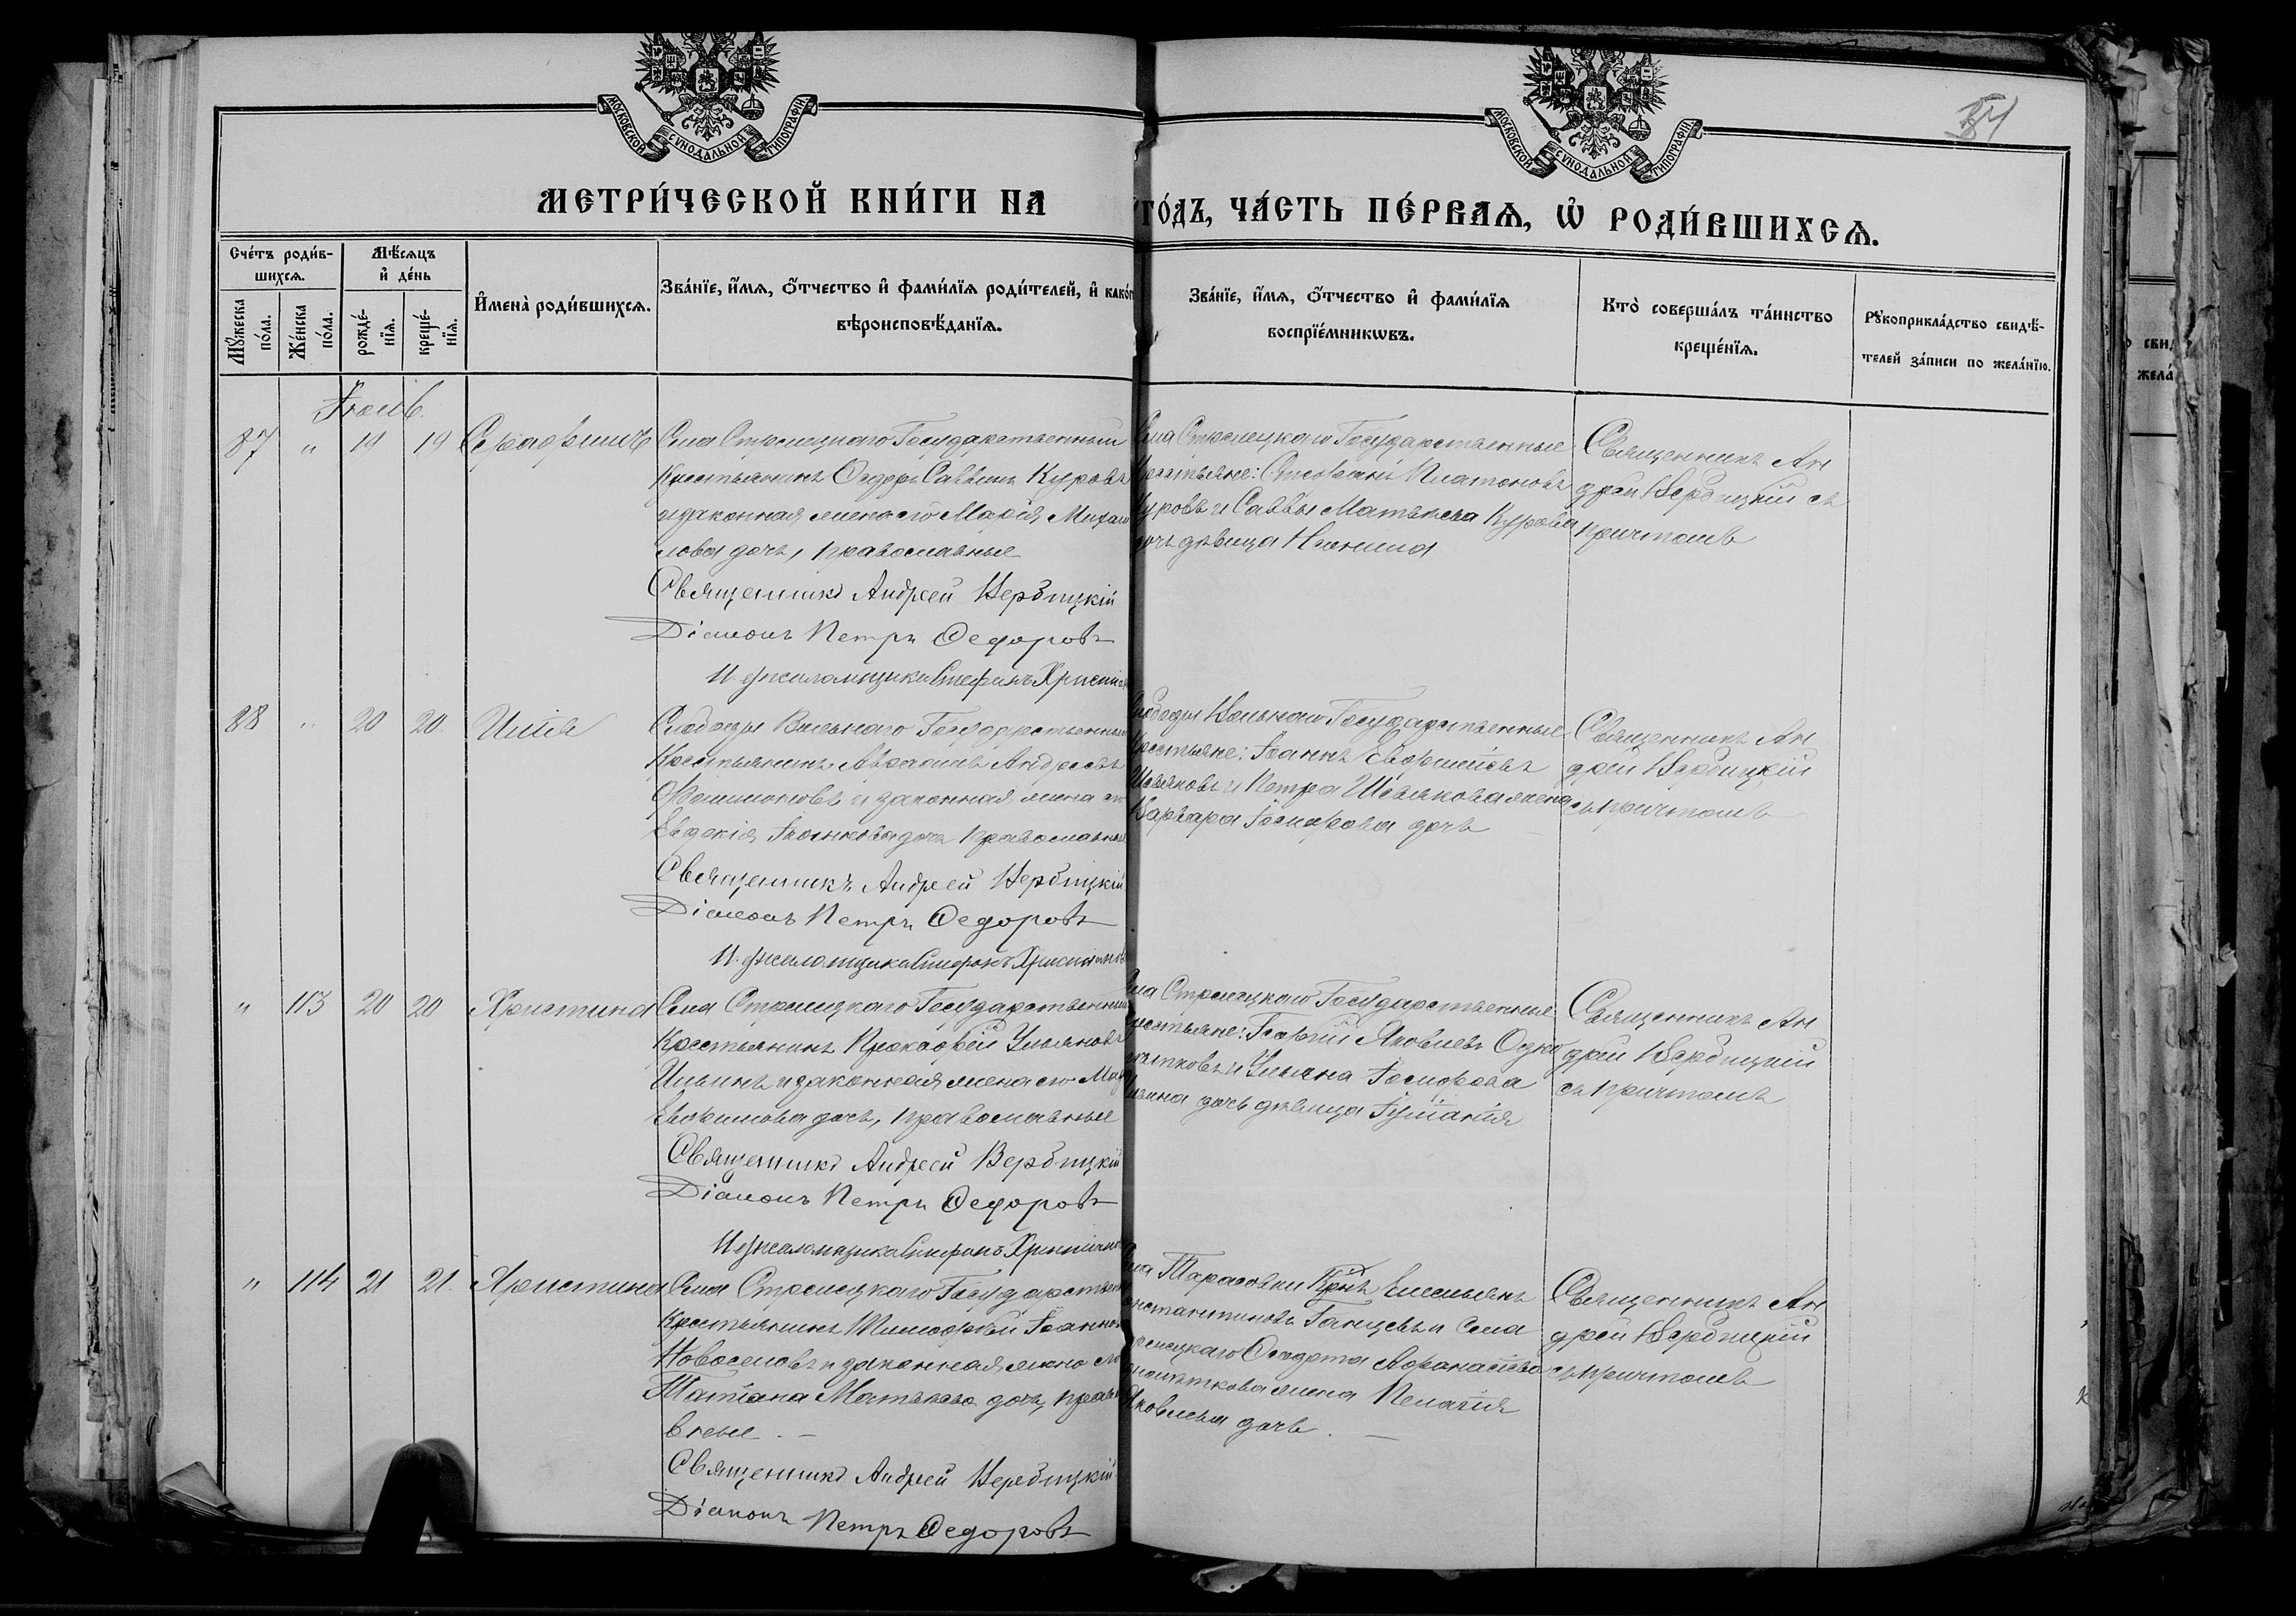 МОСКОВСКОЙ СѴНОДАЛЬНОЙ ТИПОГРАФІИ
МОСКОВСКОЙ СѴНОДАЛЬНОЙ ТИПОГРАФІИ
МЕТРИ́ЧЕСКОЙ КНИ́ГИ НА
ГО́ДЪ, ЧА́СТЬ ПЕ́РВАѦ, Ѡ҆ РОДИ́ВШИХСѦ.
Сче́тъ роди́в-
шихсѧ.
Мꙋ́жеска
по́ла.
Же́нска
по́ла.
Мѣ́сѧцъ
и҆ де́нь
рожде́-
нїѧ.
креще́-
нїѧ.
И҆мена̀ роди́вшихсѧ.
Зва́нїе, и҆́мѧ, ѻ҆́тчество и҆ фами́лїѧ роди́телей, и҆ како́г
вѣроисповѣ́данїѧ.
Зва́нїе, и҆́мѧ, ѻ҆́тчество и҆ фами́лїѧ
воспрїе́мникѡвъ.
Кто̀ соверша́лъ та́инство
креще́нїѧ.
Рꙋкоприкла́дство свидѣ́-
телей за́писи по жела́нїю.
87 " 19 19 Серафимъ
Села Стрелецкаго Государственный
Крестьянинъ Ѳедоръ Саввинъ Куровъ
и законная жена его Марія Михаи
лова дочь, православные
Священникъ Андрей Вербицкій
Діаконъ Петръ Ѳедоровъ
И. д. псаломщика Стефанъ
Села Стрелецкаго Государственные
Крестьяне: Стефанъ Платоновъ
Куровъ и Саввы Матвѣева Курова
дочь дѣвица
Священникъ Ан
дрей Вербицкій съ
причтомъ
88 " 20 20 Илія
Слободы Вольнаго Государственный
Крестьянинъ Авраамъ Андреевъ
Филимоновъ и законная жена его
Евдокія дочь православные
Священникъ Андрей Вербицкій
Діаконъ Петръ Ѳедоровъ
И. д. псаломщика Стефанъ
Слободы Вольнаго Государственные
Крестьяне: Іоаннъ
Шевяковъ и Петра Шевякова жена
Варвара Іосифова дочь
Священникъ Ан
дрей Вербицкій
съ причтомъ
" 113 20 20 Христина
Села Стрелецкаго Государственный
Крестьянинъ Прокофій Ульяновъ
Ильинъ и законная жена его
Ефимова дочь, православные
Священникъ Андрей Вербицкій
Діаконъ Петръ Ѳедоровъ
И. д. псаломщика Стефанъ
Села Стрелецкаго Государственные
крестьяне: Георгій Яковлевъ
и Ульяна Іосифова
Ильина дочь дѣвица Іуліанія
Священникъ Ан
дрей Вербицкій
съ причтомъ
" 114 21 21. Христина
Села Стрелецкаго Государствен
Крестьянинъ Тимофей Іоаннов
Новоселовъ и законная жена его
Татіана Матвѣева дочь, право
вные. —
Священникъ Андрей Вербицкій
Діаконъ Петръ Ѳедоровъ
Села Тарасовки Емельянъ
Константиновъ и Села
Стрелецкаго Ѳедота
жена Пелагія
Яковлева дочь. —
Священникъ Ан
дрей Вербицкій
съ причтомъ